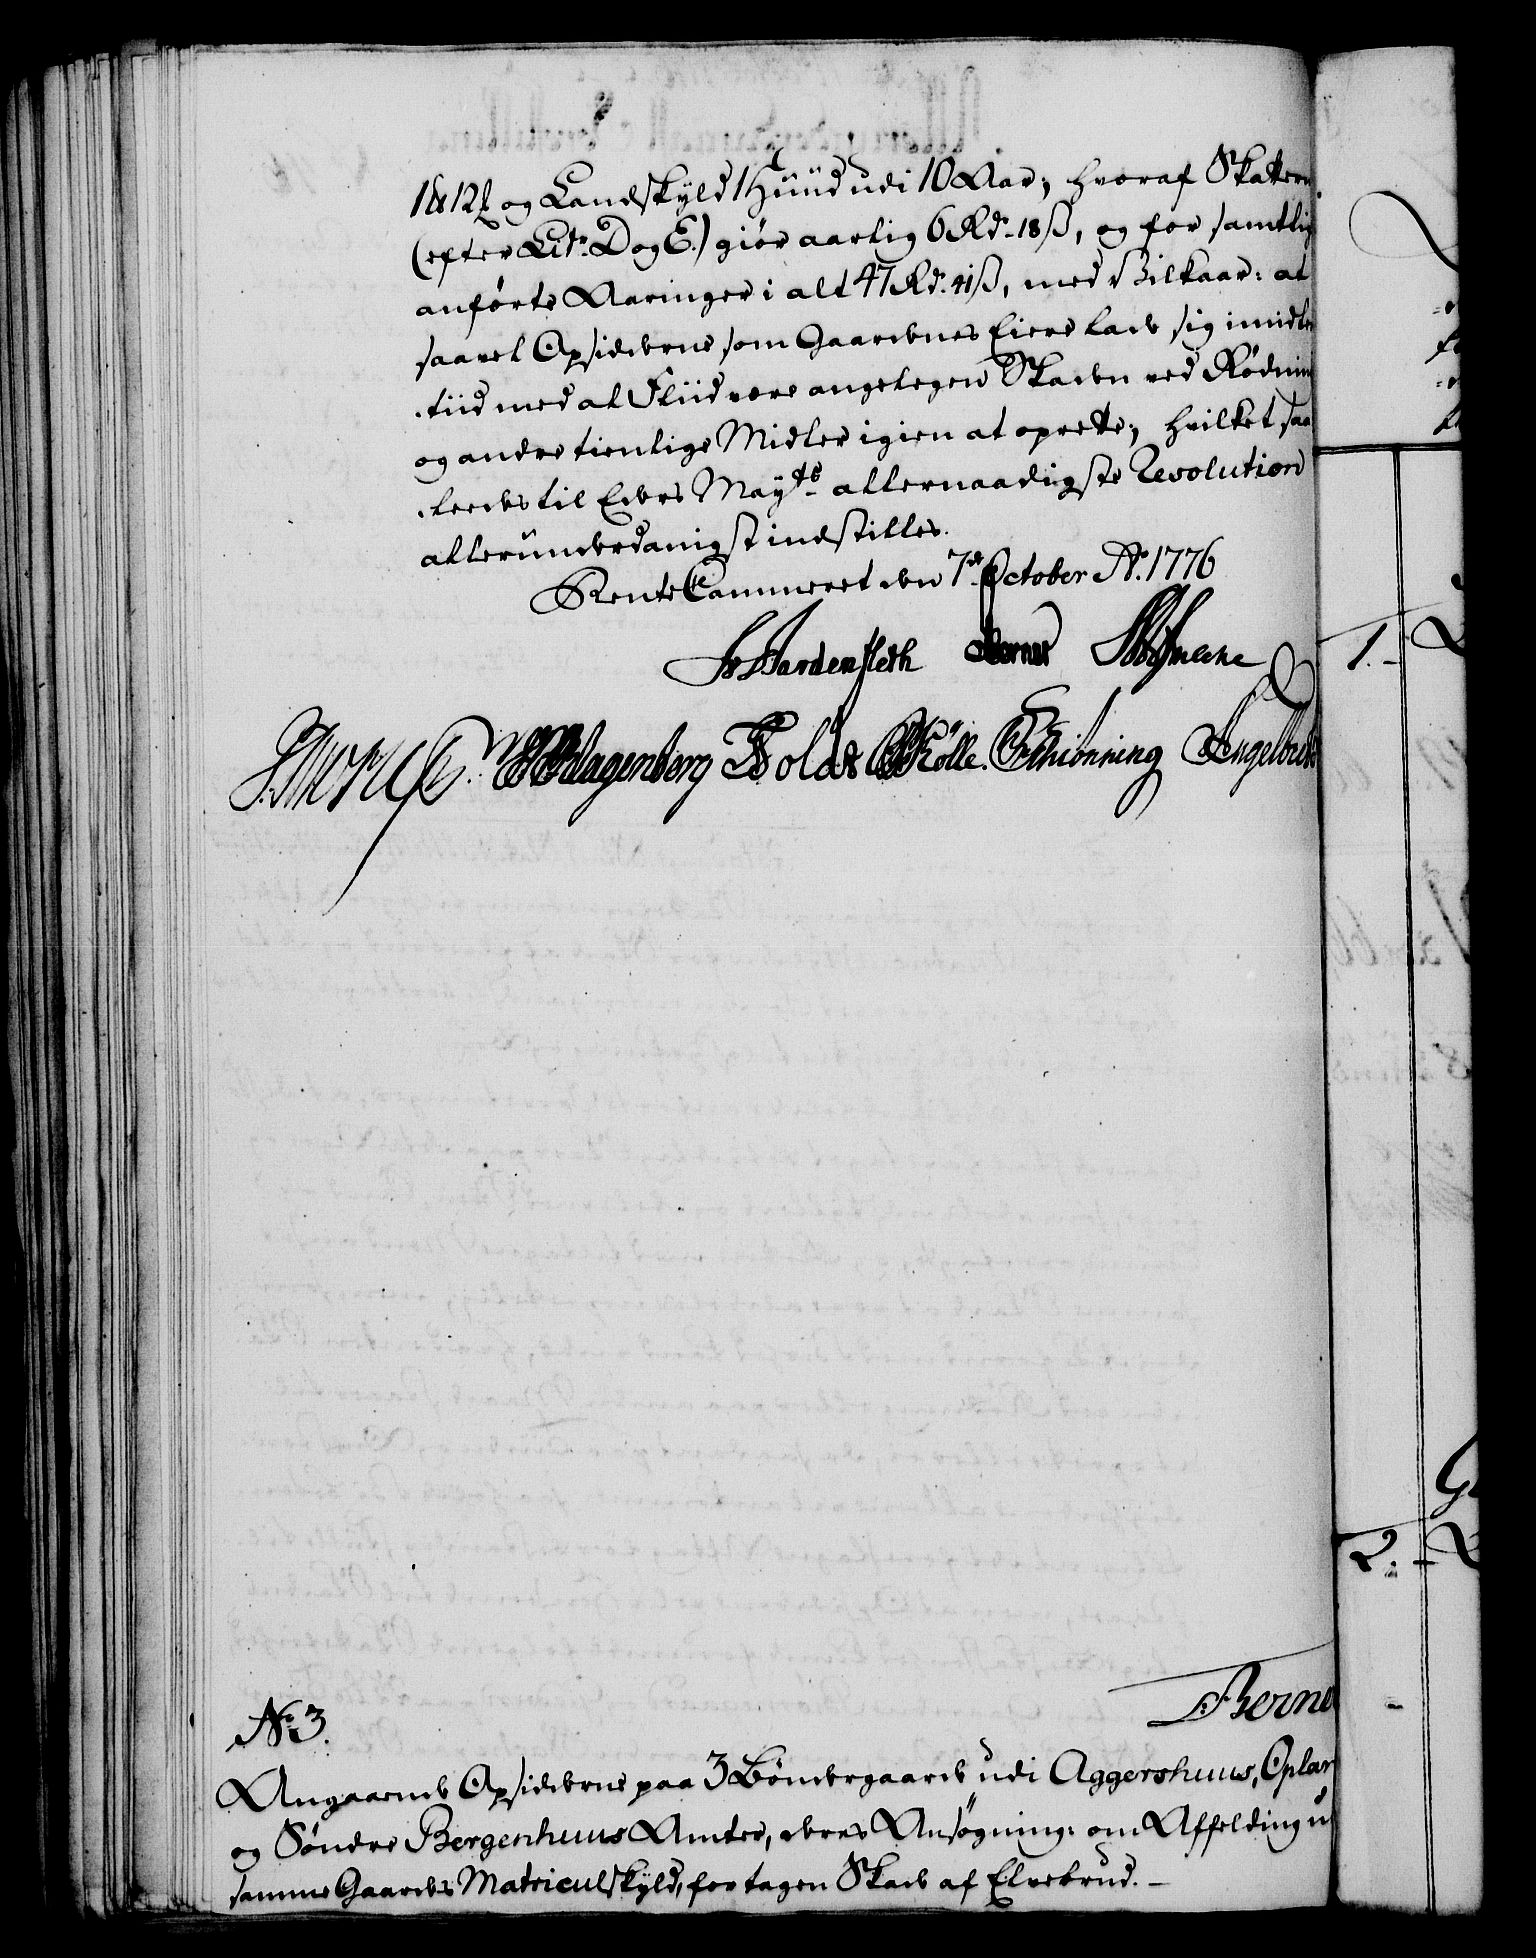 og Landskyld 1 Huud udi 10 Aar; hvoraf Skatterne
(efter Litr. D og E.) giør aarlig 6 Rdr. 18 ß, og for samtlig
anførte Aaringer i alt 47 Rdr. 41 ß, med Vilkaar: at
saavel Opsidderne som Gaardenes Eiere lade sig imidler
tiid med al Fliid være angelegen Skaden ved Rødning
og andre tienlige Midler igien at oprette; hvilket saa
ledes til Eders Mayts allernaadigste Resolution
allerunderdanigst indstilles.
Rente Cammeret den 7de October Ao. 1776
Wardenfleth Berner
Wagenberg Holdt Kölle. Schiönning Engelbret
1.
2.
Berne
No. 3.
Angaaende Opsidderne paa 3 Bøndergaarde udi Aggershuus, Oplan
og Søndre Bergenhuus Amter, deres Ansøgning: om Affelding u
samme Gaardes Matriculskyld, for tagen Skade af Elvebrud. –